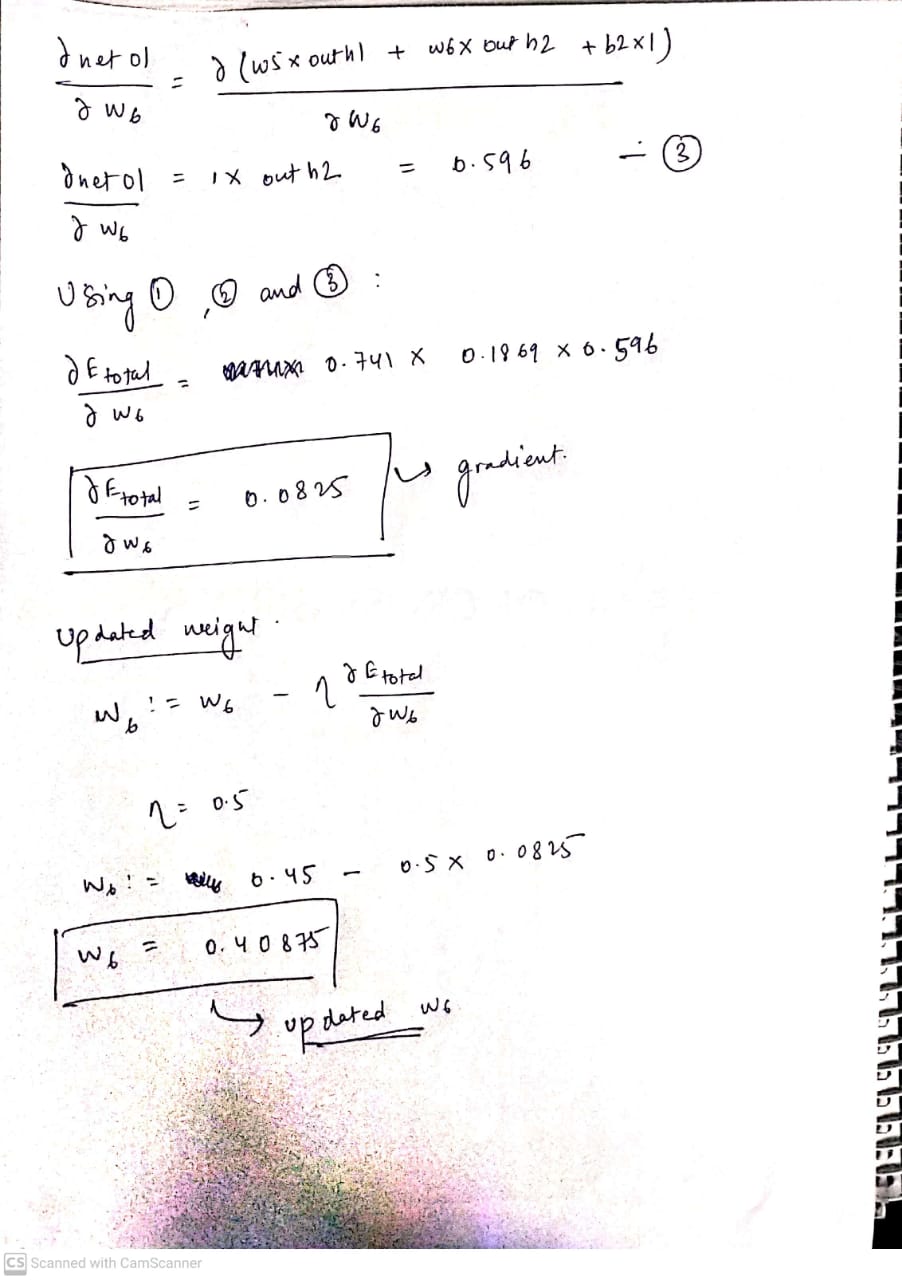 ∂ net o1 / ∂ w6 = ∂ (w5 x outh1 + w6 x out h2 + b2x1) / ∂ w6
∂ net o1 / ∂ w6 = 1 x out h2 = 0.596 - ③
Using ① , ② and ③ :
∂ E total / ∂ w6 = 0.741 x 0.1869 x 0.596
∂ E total / ∂ w6 = 0.0825 → gradient.
Updated weight.
w6 := w6 - η ∂ E total / ∂ w6
η = 0.5
w6 := 0.45 - 0.5 x 0.0825
w6 = 0.40875
→ updated w6
CS Scanned with CamScanner